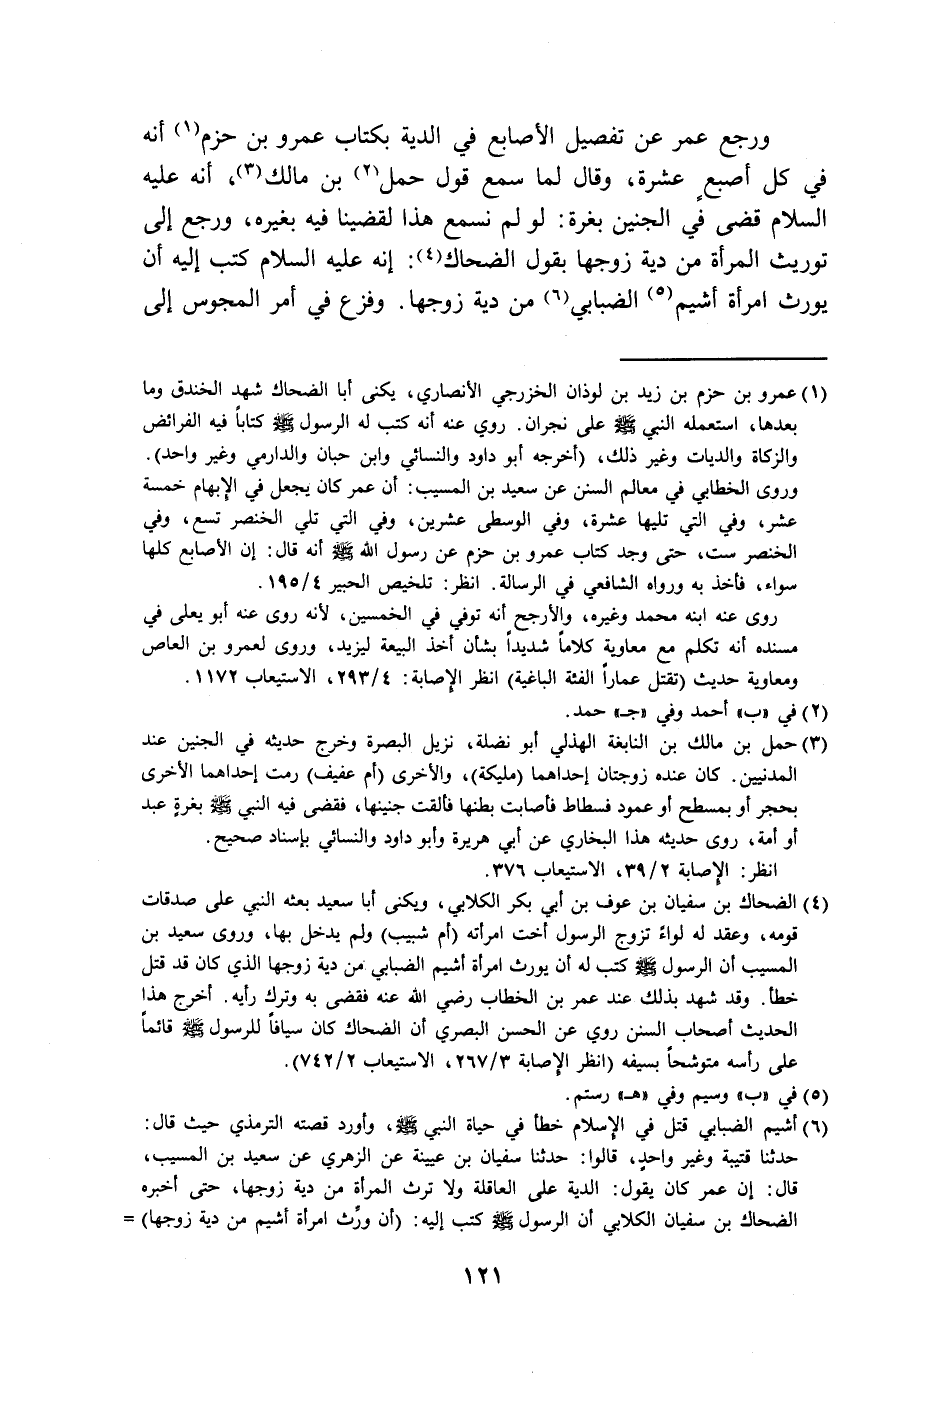 ورجع عمر عن تفصيل الأصابع في الدية بكتاب عمرو بن حزم(١) أنه
في كل أصبعٍ عشرة، وقال لما سمع قول حمل(٢) بن مالك(٣)، أنه عليه
السلام قضى في الجنين بغرة: لو لم نسمع هذا لقضينا فيه بغيره، ورجع إلى
توريث المرأة من دية زوجها بقول الضحاك(٤): إنه عليه السلام كتب إليه أن
يورث امرأة أشيم(٥) الضبابي(٦) من دية زوجها. وفزع في أمر المجوس إلى
(١) عمرو بن حزم بن زيد بن لوذان الخزرجي الأنصاري، يكنى أبا الضحاك شهد الخندق وما
بعدها، استعمله النبي ﷺ على نجران. روي عنه أنه كتب له الرسول ﷺ كتاباً فيه الفرائض
والزكاة والديات وغير ذلك، (أخرجه أبو داود والنسائي وابن حبان والدارمي وغير واحد).
وروى الخطابي في معالم السنن عن سعيد بن المسيب: أن عمر كان يجعل في الإبهام خمسة
عشر، وفي التي تليها عشرة، وفي الوسطى عشرين، وفي التي تلي الخنصر تسع، وفي
الخنصر ست، حتى وجد كتاب عمرو بن حزم عن رسول الله ﷺ أنه قال: إن الأصابع كلها
سواء، فأخذ به ورواه الشافعي في الرسالة. انظر: تلخيص الحبير ١٩٥/٤.
روى عنه ابنه محمد وغيره، والأرجح أنه توفي في الخمسين، لأنه روى عنه أبو يعلى في
مسنده أنه تكلم مع معاوية كلاماً شديداً بشأن أخذ البيعة ليزيد، وروى لعمرو بن العاص
ومعاوية حديث (تقتل عماراً الفئة الباغية) انظر الإصابة: ٢٩٣/٤، الاستيعاب ١١٧٢.
(٢) في «ب» أحمد وفي «جـ» حمد.
(٣) حمل بن مالك بن النابغة الهذلي أبو نضلة، نزيل البصرة وخرج حديثه في الجنين عند
المدنيين. كان عنده زوجتان إحداهما (مليكة)، والأخرى (أم عفيف) رمت إحداهما الأخرى
بحجر أو بمسطح أو عمود فسطاط فأصابت بطنها فألقت جنينها، فقضى فيه النبي ﷺ بغرةٍ عبد
أو أمة، روى حديثه هذا البخاري عن أبي هريرة وأبو داود والنسائي بإسناد صحيح.
انظر: الإصابة ٣٩/٢، الاستيعاب ٣٧٦.
(٤) الضحاك بن سفيان بن عوف بن أبي بكر الكلابي، ويكنى أبا سعيد بعثه النبي على صدقات
قومه، وعقد له لواءً تزوج الرسول أخت امرأته (أم شبيب) ولم يدخل بها، وروى سعيد بن
المسيب أن الرسول ﷺ كتب له أن يورث امرأة أشيم الضبابي من دية زوجها الذي كان قد قتل
خطأ. وقد شهد بذلك عند عمر بن الخطاب رضي الله عنه فقضى به وترك رأيه. أخرج هذا
الحديث أصحاب السنن روي عن الحسن البصري أن الضحاك كان سيافاً للرسول ﷺ قائماً
على رأسه متوشحاً بسيفه (انظر الإصابة ٢٦٧/٣، الاستيعاب ٧٤٢/٢).
(٥) في «ب» وسيم وفي «هـ» رستم.
(٦) أشيم الضبابي قتل في الإسلام خطأ في حياة النبي ﷺ، وأورد قصته الترمذي حيث قال:
حدثنا قتيبة وغير واحدٍ، قالوا: حدثنا سفيان بن عيينة عن الزهري عن سعيد بن المسيب،
قال: إن عمر كان يقول: الدية على العاقلة ولا ترث المرأة من دية زوجها، حتى أخبره
الضحاك بن سفيان الكلابي أن الرسول ﷺ كتب إليه: (أن ورِّث امرأة أشيم من دية زوجها) =
١٢١